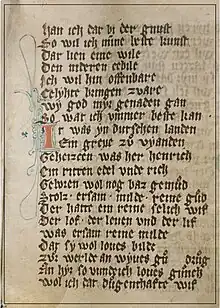 han ich dar bi der gunst
So wil ich mine beste kunst
Dar lien eine wile
Den meren
Ich wil hin offenbare
bringen zware
Wy god myr genaden gan
So war ich ymmer beste kan
Ir was yn durschen landen
Ein greve zu vyanden
Geheizen was her henrich
Ein ritter edel vnde rich
Geboren wol noch gar gemuod
Stolz ersam milde reine guod
Der hatte ein reine selich wif
Der lof der leuen vnd der lif
was ersam reine milde
Dar sy wol loues bilde
zu werlde an wyues
An hyr so vundich loues
wol ich dar dugenhafte wif